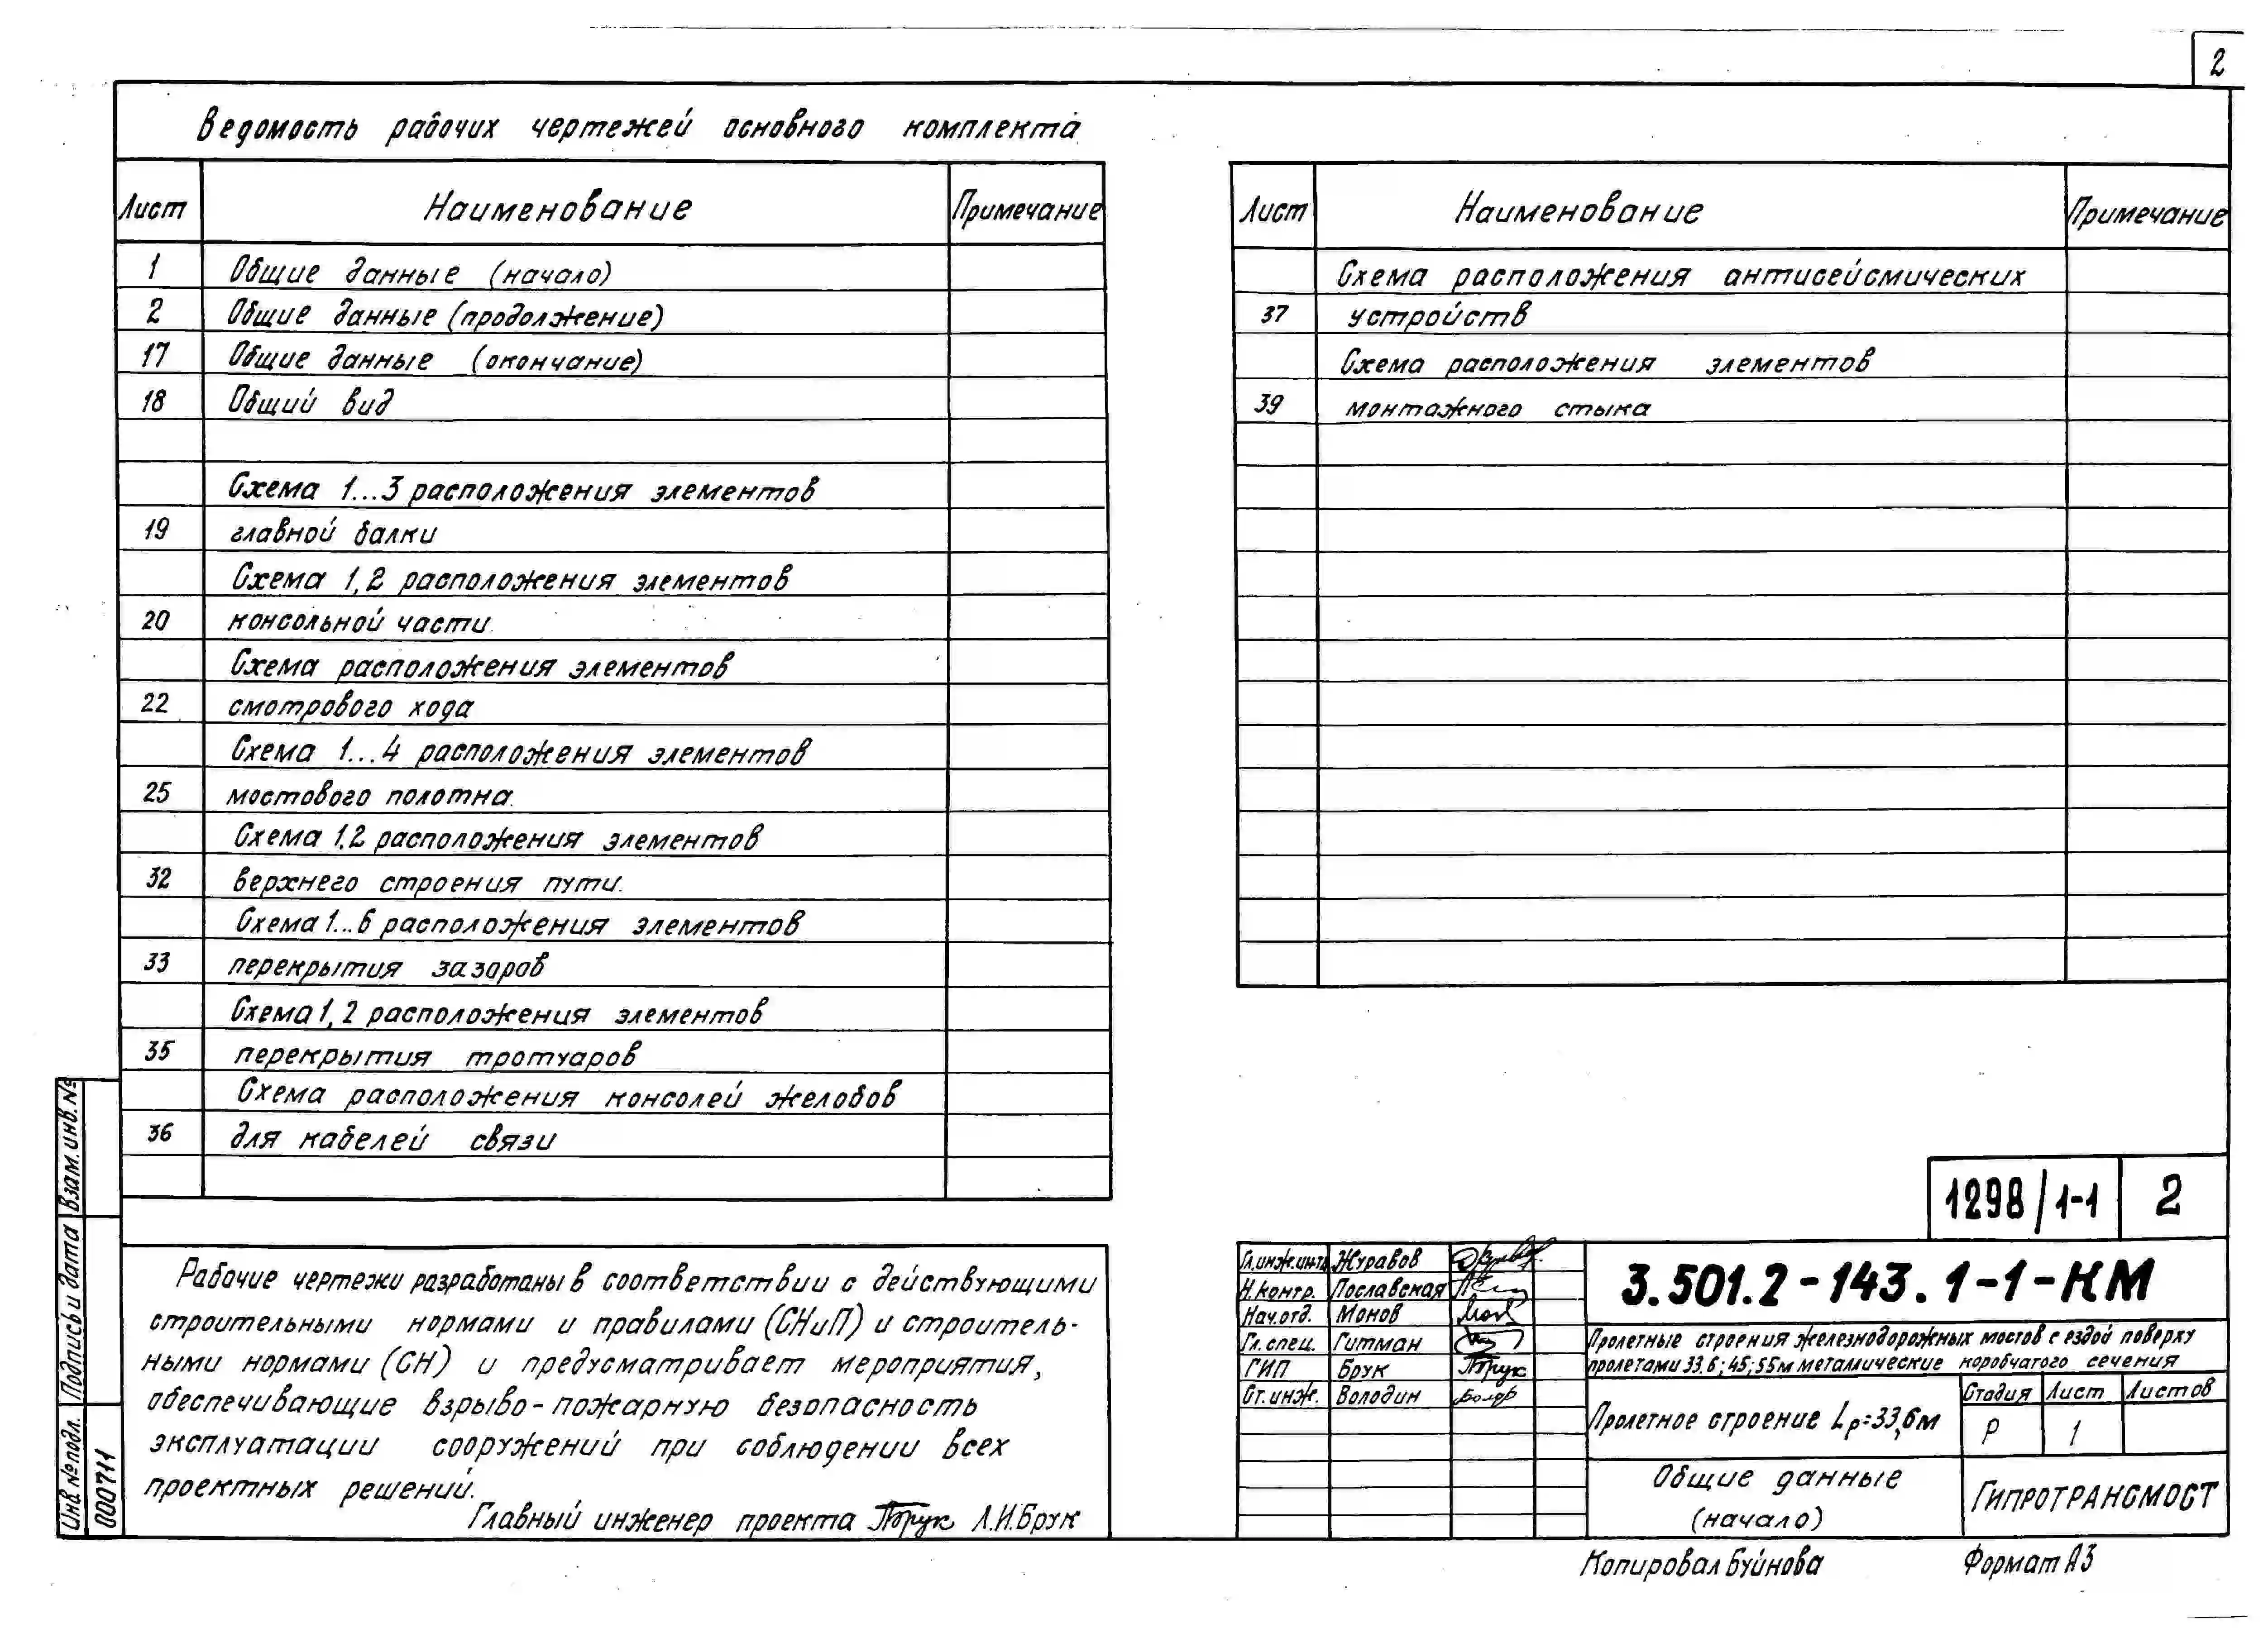 2
Ведомость рабочих чертежей основного комплекта
Лист Наименование Примечание
1 Общие данные (начало)
2 Общие данные (продолжение)
17 Общие данные (окончание)
18 Общий вид
Схема 1...3 расположения элементов
19 главной балки
Схема 1,2 расположения элементов
20 консольной части.
Схема расположения элементов
22 смотрового хода
Схема 1...4 расположения элементов
25 мостового полотна.
Схема 1.2 расположения элементов
32 верхнего строения пути.
Схема 1...6 расположения элементов
33 перекрытия зазоров
Схема 1,2 расположения элементов
35 перекрытия тротуаров
Схема расположения консолей желобов
36 для кабелей связи
Лист Наименование Примечание
Схема расположения антисейсмических
37 устройств
Схема расположения элементов
39 монтажного стыка
Рабочие чертежи разработаны в соответствии с действующими
строительными нормами и правилами (СНиП) и строитель-
ными нормами (СН) и предусматривает мероприятия,
обеспечивающие взрыво-пожарную безопасность
эксплуатации сооружений при соблюдении всех
проектных решений.
Главный инженер проекта Брук Л.И.Брук
Инв.№ подл. Подпись и дата Взам.инв.№
000711
1298/1-1 2
Гл.инж.инта Журавов
Н.контр. Пославская
Нач.отд. Монов
Гл.спец. Гитман
ГИП Брук Брук
Ст.инж. Володин
3.501.2-143.1-1-КМ
Пролетные строения железнодорожных мостов с ездой поверху
пролетами 33.6; 45; 55м металлические коробчатого сечения
Пролетное строение Lр=33,6м
Стадия Лист Листов
Р 1
Общие данные
(начало)
ГИПРОТРАНСМОСТ
Копировал Буйнова Формат А3